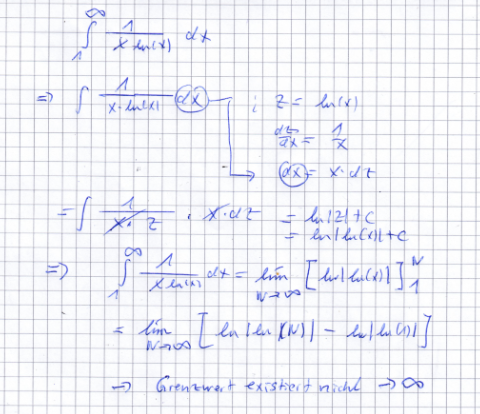 ∫₁^∞ 1/(x·ln(x)) dx
=> ∫ 1/(x·ln(x)) dx ; z = ln(x)
dz/dx = 1/x
dx = x·dz
= ∫ 1/(x·z) · x·dz = ln|z|+C
= ln|ln(x)|+C
=> ∫₁^∞ 1/(x ln(x)) dx = lim N→∞ [ln|ln(x)|]₁^N
= lim N→∞ [ln|ln(N)| − ln|ln(1)|]
→ Grenzwert existiert nicht → ∞